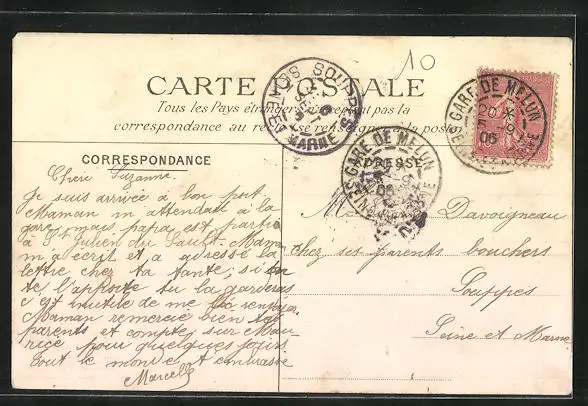 10
CARTE POSTALE
Tous les Pays étrangers n'acceptent pas la
correspondance au recto se renseigner à la poste
CORRESPONDANCE
Chère Suzanne.
Je suis arrivée à bon port
Maman m attendait à la
gare, mais papa est partie
à St Julien du Sault. Maman
m a écrit et a adressé la
lettre chez ta tante, si on
te l'apporte tu la garderas
c'est inutile de me renvoyer
Maman remercie bien tes
parents et compte sur Mau
rice pour quelques jours
Tout le monde t embrasse
Marcelle
M Davoigneau
chez ses parents bouchers
Souppes
Seine et Marne
SOUPPES
SEINE-ET-MARNE
GARE DE MELUN
PRESSE
06
GARE DE MELUN
06